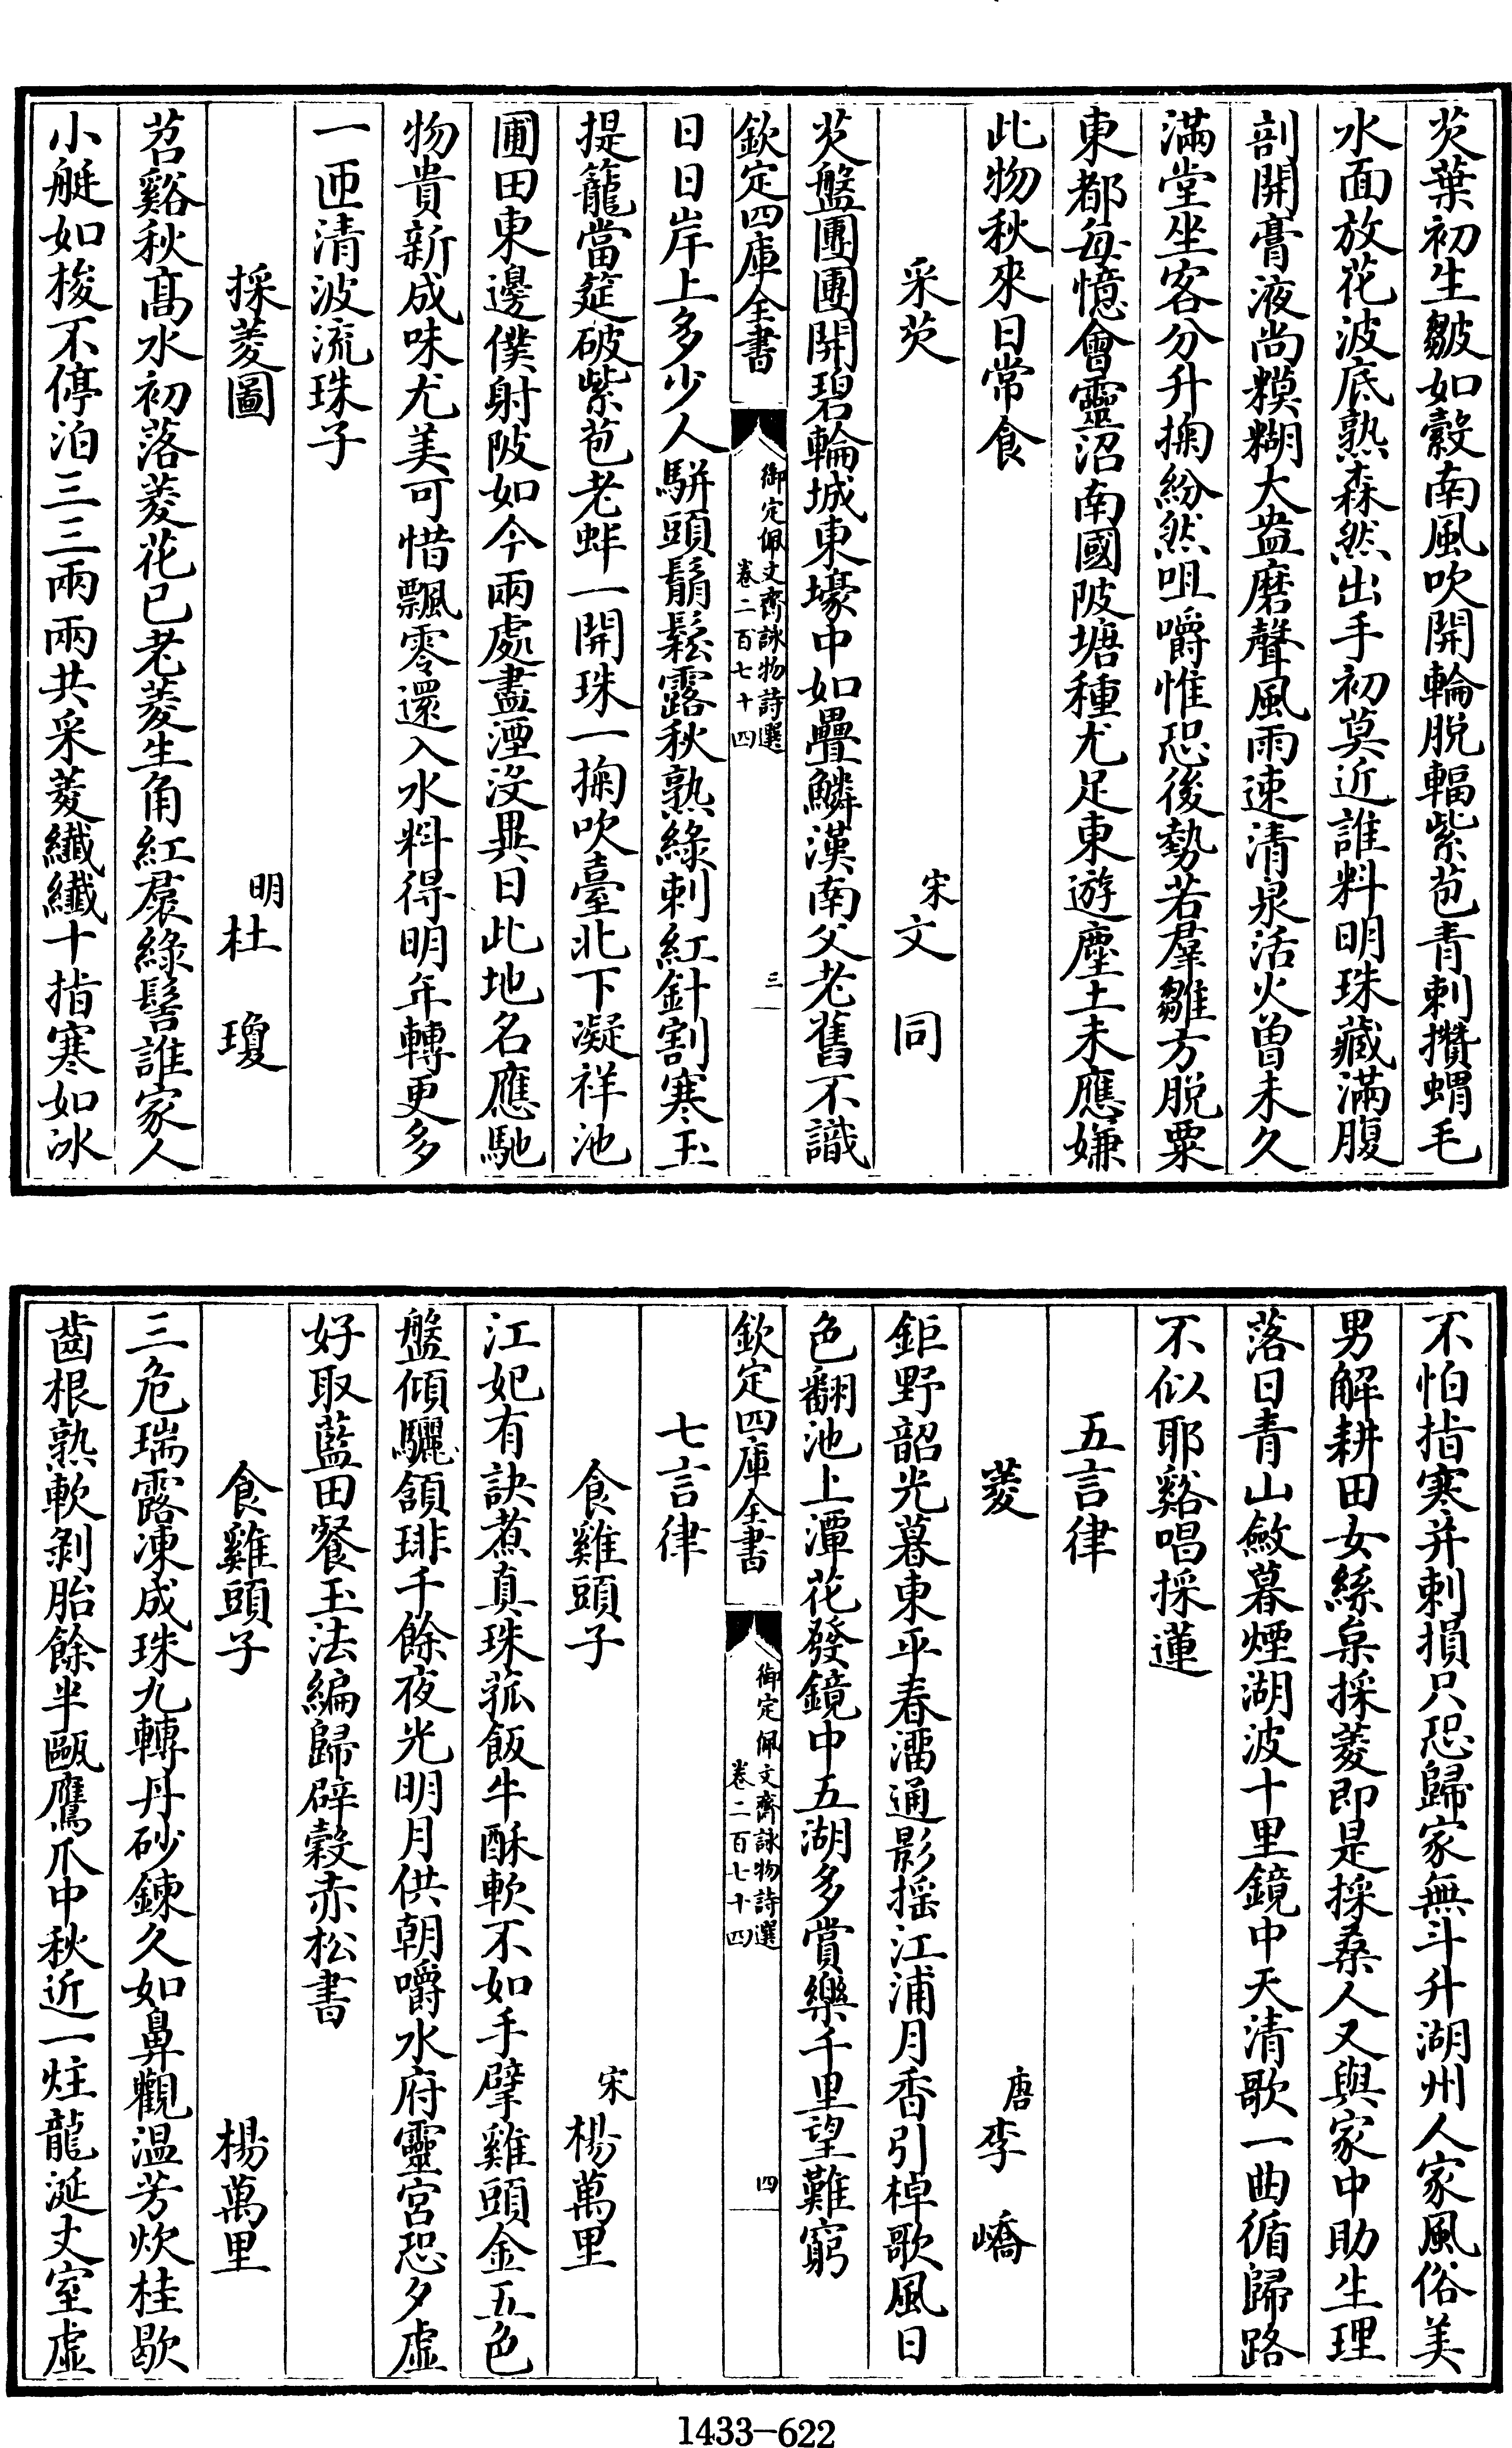 芡葉初生皺如縠南風吹開輪脫輻紫苞青刺攢蝟毛
水面放花波底熟森然出手初莫近誰料明珠藏滿腹
剖開膏液尚糢糊大盎磨聲風雨速清泉活火曽未久
滿堂坐客分升掬紛然咀嚼惟恐後勢若羣雛方脫粟
東都每憶會靈沼南國陂塘種尤足東遊塵土未應嫌
此物秋來日常食
采芡
宋文同
芡盤團團開碧輪城東壕中如疊鱗漢南父老舊不識
欽定四庫全書
御定佩文齋詠物詩選
卷二百七十四
三
日日岸上多少人駢頭鬅鬆露秋熟綠刺紅針割寒玉
提籠當筵破紫苞老蚌一開珠一掬吹臺北下凝祥池
圃田東邊僕射陂如今兩處盡湮沒異日此地名應馳
物貴新成味尤美可惜飄零還入水料得明年轉更多
一匝清波流珠子
採菱圖
明杜瓊
苕谿秋髙水初落菱花已老菱生角紅裠綠髻誰家人
小艇如梭不停泊三三兩兩共采菱纖纖十指寒如冰
不怕指寒并刺損只恐歸家無斗升湖州人家風俗美
男解耕田女絲枲採菱即是採桑人又與家中助生理
落日青山斂暮煙湖波十里鏡中天清歌一曲循歸路
不似耶谿唱採蓮
五言律
菱
唐李嶠
鉅野韶光暮東平春溜通影搖江浦月香引棹歌風日
色翻池上潭花發鏡中五湖多賞樂千里望難窮
欽定四庫全書
御定佩文齋詠物詩選
卷二百七十四
四
七言律
食雞頭子
宋楊萬里
江妃有訣煮真珠菰飯牛酥軟不如手擘雞頭金五色
盤傾驪頷琲千餘夜光明月供朝嚼水府靈宮恐夕虛
好取藍田餐玉法編歸辟穀赤松書
食雞頭子
楊萬里
三危瑞露凍成珠九轉丹砂鍊久如鼻觀温芳炊桂歇
齒根熟軟剝胎餘半甌鷹爪中秋近一炷龍涎丈室虛
1433-622